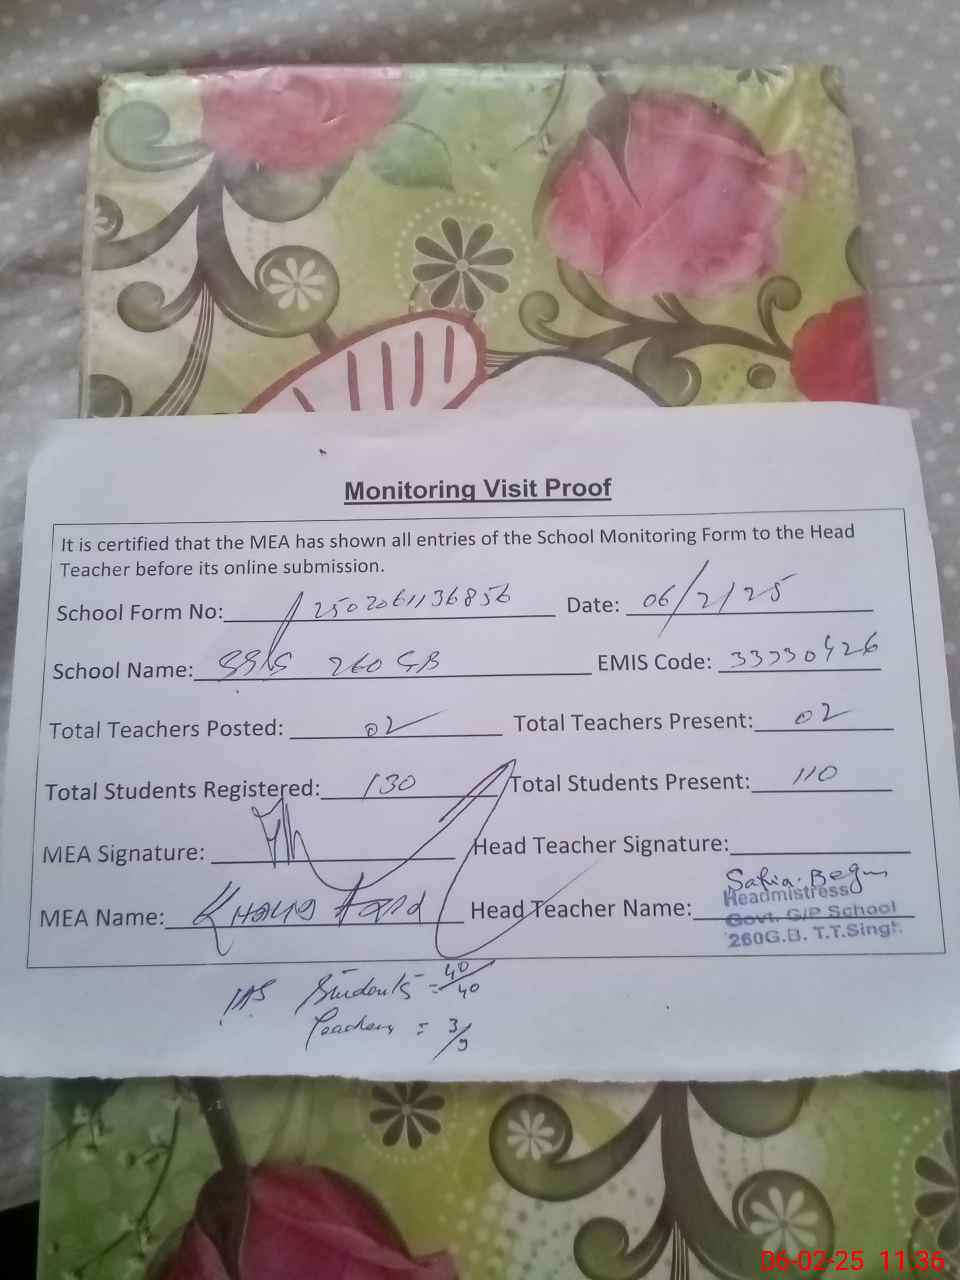 Monitoring Visit Proof
It is certified that the MEA has shown all entries of the School Monitoring Form to the Head
Teacher before its online submission.
School Form No: 2502061136856 Date: 06/2/25
School Name: 260 GB EMIS Code: 33330426
Total Teachers Posted: 02 Total Teachers Present: 02
Total Students Registered: 130 Total Students Present: 110
MEA Signature: Head Teacher Signature:
MEA Name: Head Teacher Name: Safia Begum
Headmistress
Govt. G/P School
260G.B. T.T.Singh.
Students = 40/40
Teachers = 3/
06-02-25 11:36